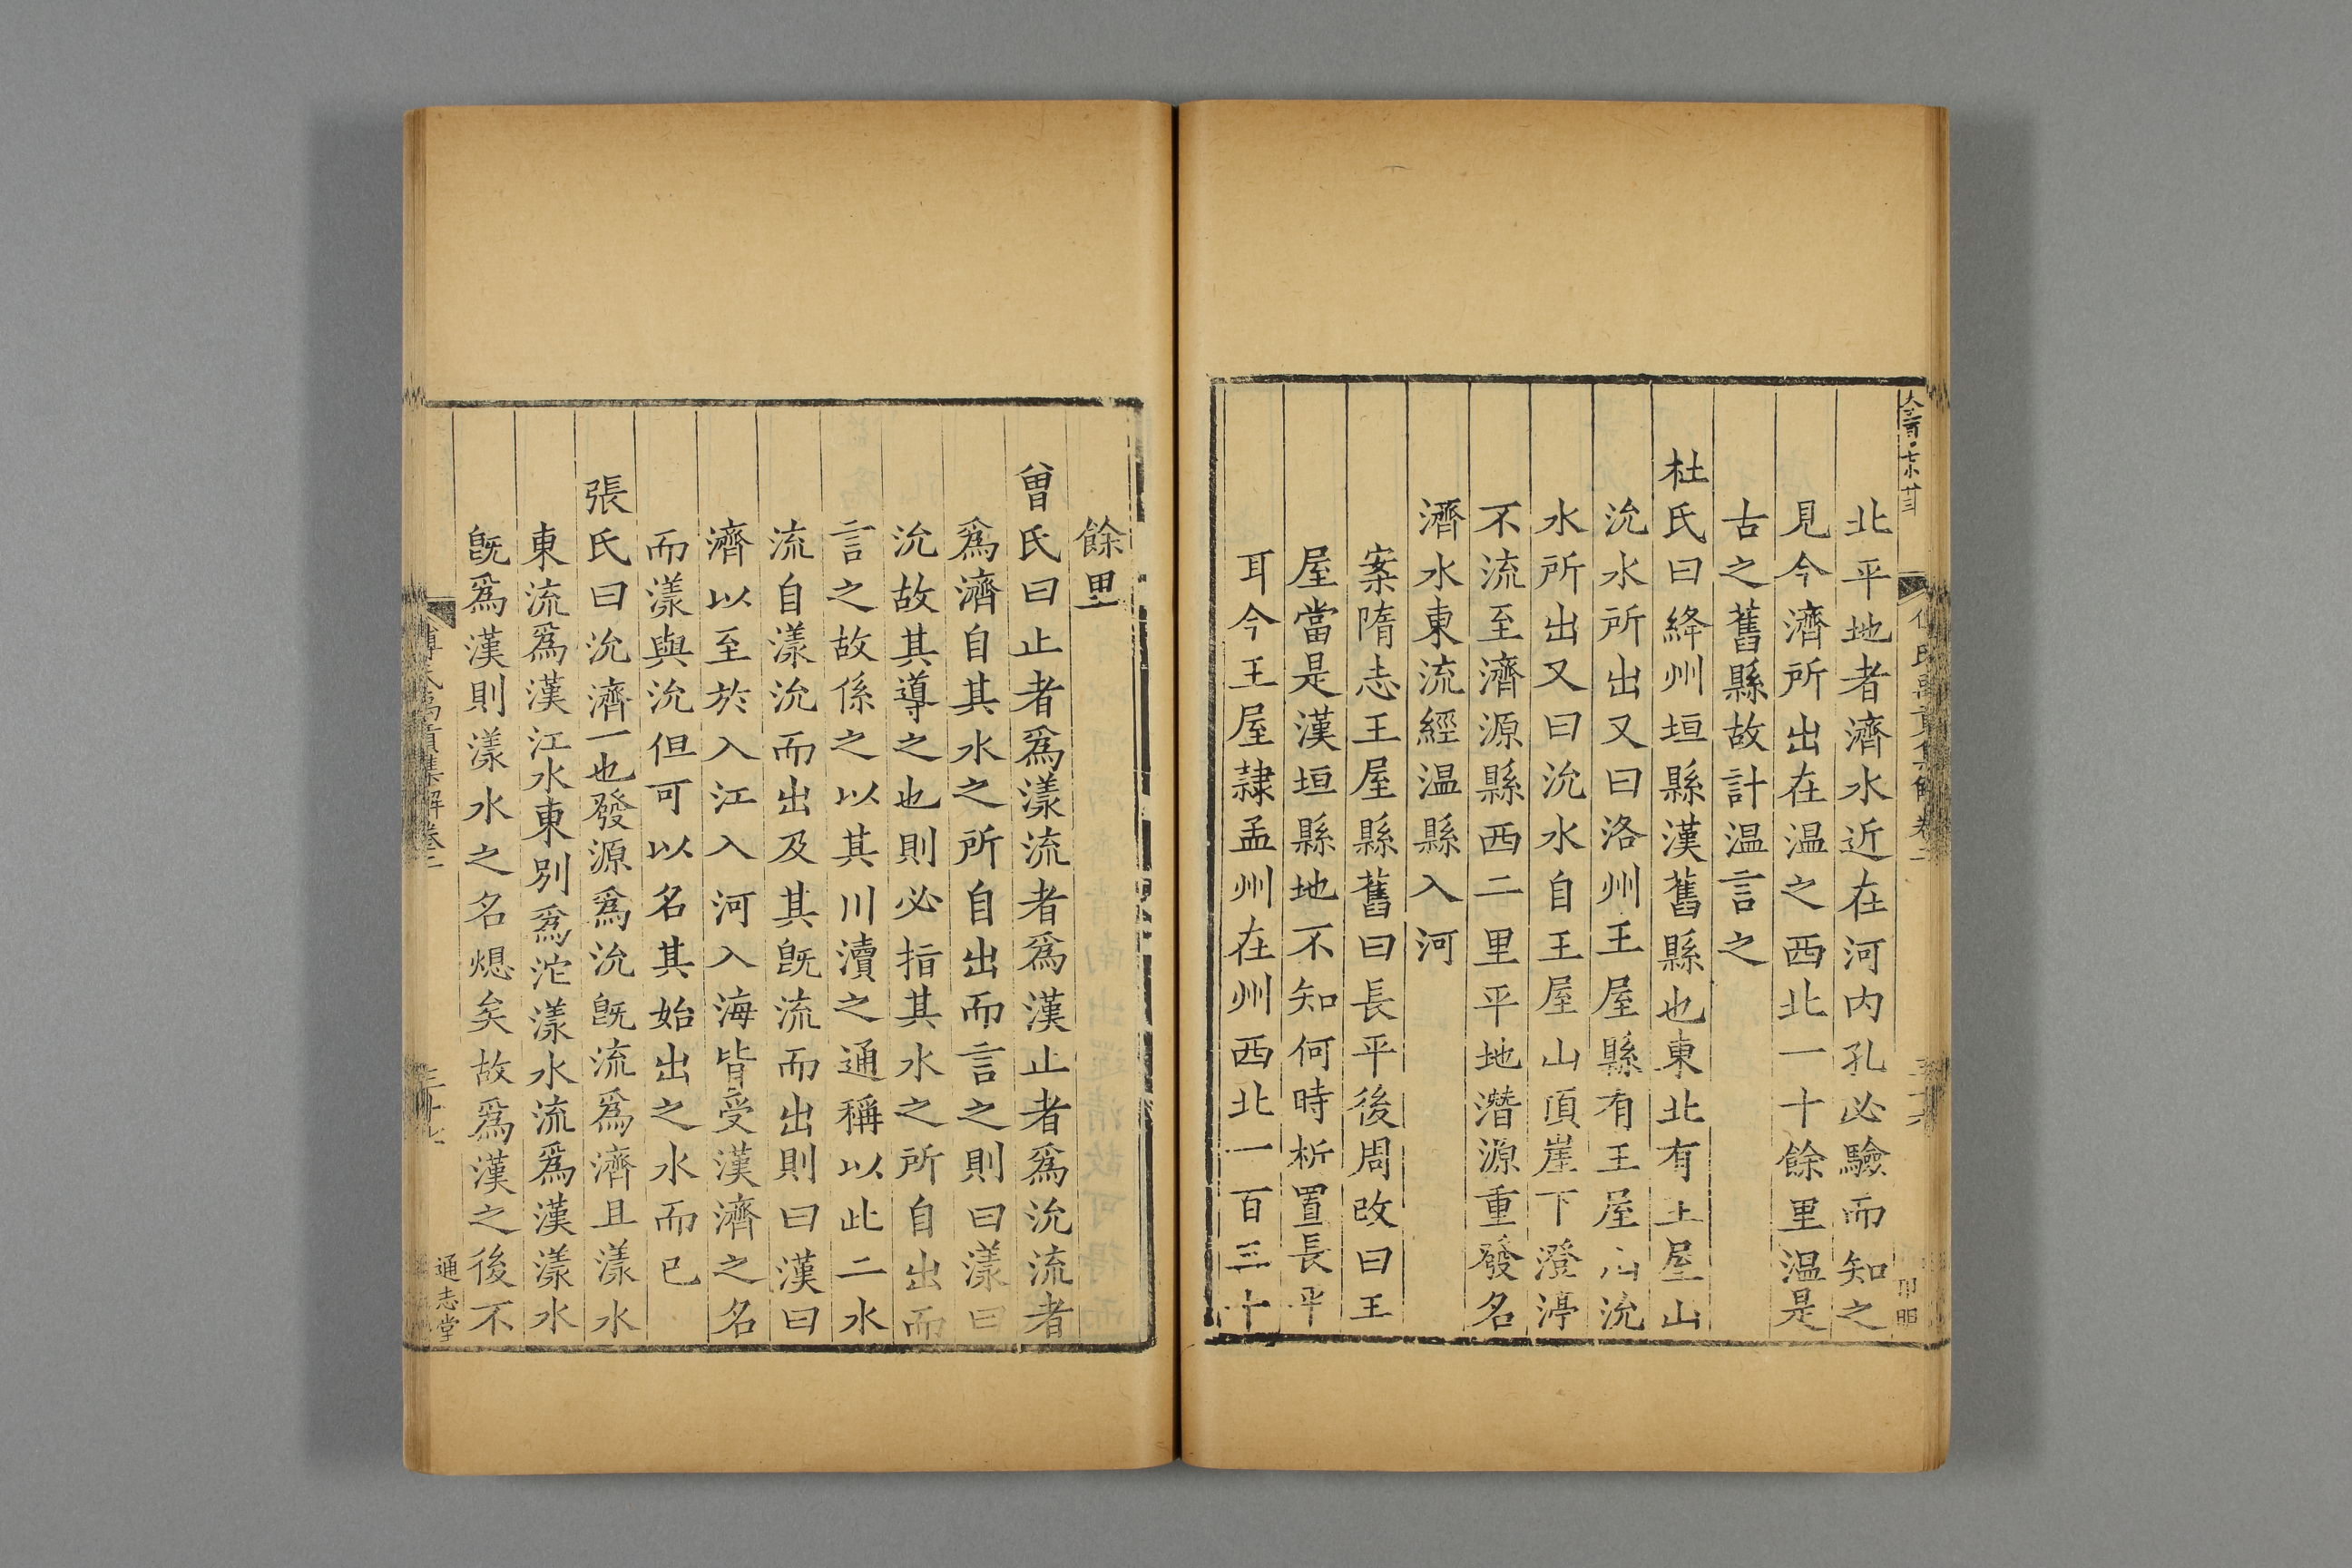 北平地者濟水近在河内孔必驗而知之
見今濟所出在温之西北一十餘里温是
古之舊縣故計温言之
杜氏曰絳州垣縣漢舊縣也東北有王屋山
沇水所出又曰洛州王屋縣有王屋山沇
水所出又曰沇水自王屋山頂崖下澄渟
不流至濟源縣西二里平地潛源重發名
濟水東流經温縣入河
案隋志王屋縣舊曰長平後周改曰王
屋當是漢垣縣地不知何時析置長平
耳今王屋隷孟州在州西北一百三十
餘里
曾氏曰止者爲漾流者爲漢止者爲沇流者
爲濟自其水之所自出而言之則曰漾曰
沇故其導之也則必指其水之所自出而
言之故係之以其川瀆之通稱以此二水
流自漾沇而出及其旣流而出則曰漢曰
濟以至於入江入河入海皆受漢濟之名
而漾與沇但可以名其始出之水而已
張氏曰沇濟一也發源爲沇旣流爲濟且漾水
東流爲漢江水東別爲沱漾水流爲漢漾水
旣爲漢則漾水之名熄矣故爲漢之後不
傅氏禹貢集解卷二
三十七
通志堂